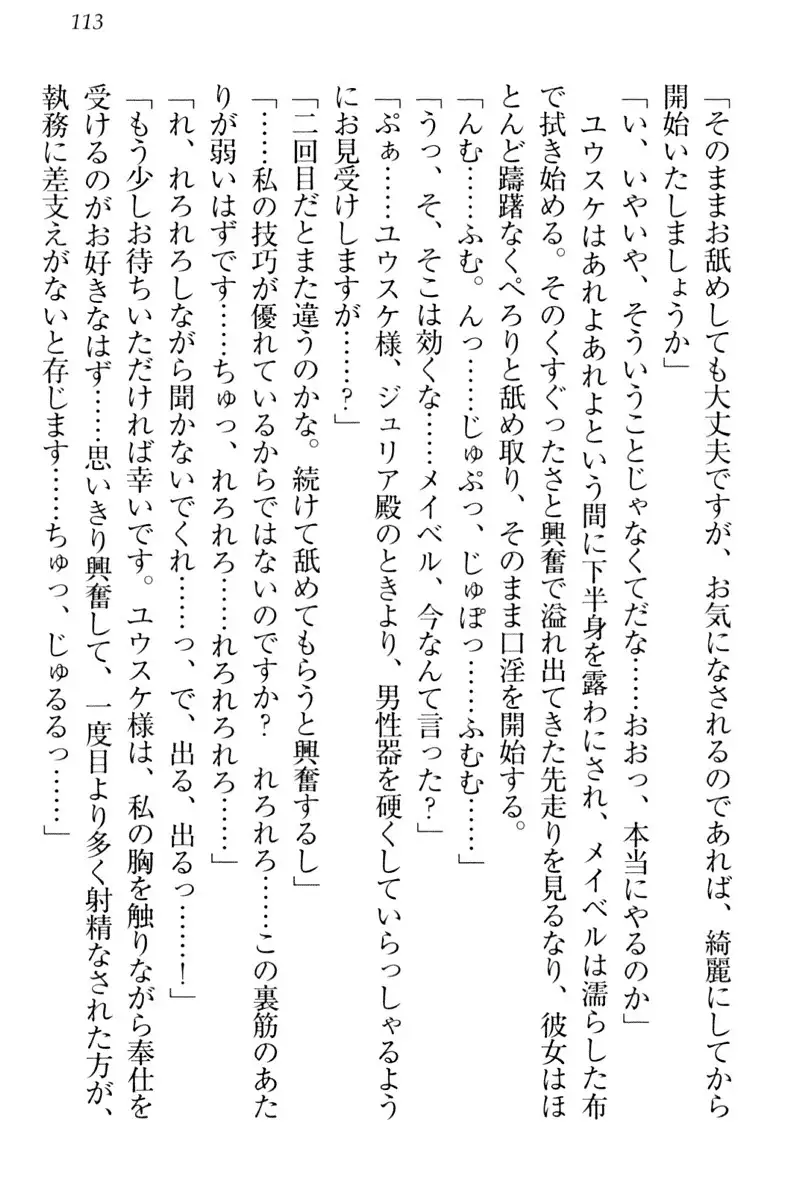 113
「そのままお舐めしても大丈夫ですが、お気になされるのであれば、綺麗にしてから
開始いたしましょうか」
「い、いやいや、そういうことじゃなくてだな……おおっ、本当にやるのか」
ユウスケはあれよあれよという間に下半身を露わにされ、メイベルは濡らした布
で拭き始める。そのくすぐったさと興奮で溢れ出てきた先走りを見るなり、彼女はほ
とんど躊躇なくぺろりと舐め取り、そのまま口淫を開始する。
「んむ……ふむ。んっ……じゅぷっ、じゅぽっ……ふむむ……」
「うっ、そ、そこは効くな……メイベル、今なんて言った?」
「ぷぁ……ユウスケ様、ジュリア殿のときより、男性器を硬くしていらっしゃるよう
にお見受けしますが……?」
「二回目だとまた違うのかな。続けて舐めてもらうと興奮するし」
「……私の技巧が優れているからではないのですか? れろれろ……この裏筋のあた
りが弱いはずです……ちゅっ、れろれろ……れろれろれろ……」
「れ、れろれろしながら聞かないでくれ……っ、で、出る、出るっ……!」
「もう少しお待ちいただければ幸いです。ユウスケ様は、私の胸を触りながら奉仕を
受けるのがお好きなはず……思いきり興奮して、一度目より多く射精なされた方が、
執務に差支えがないと存じます……ちゅっ、じゅるるっ……」